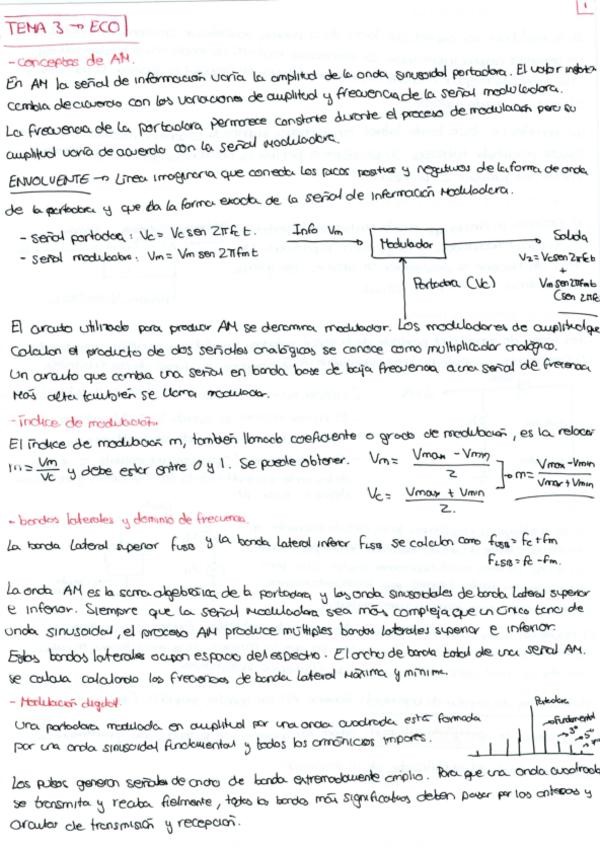 1
TEMA 3 → ECO
- Conceptos de AM.
En AM la señal de información varía la amplitud de la onda sinusoidal portadora. El valor instata
cambia de acuerdo con las variaciones de amplitud y frecuencia de la señal moduladora.
La frecuencia de la portadora permanece constante durante el proceso de modulación pero su
amplitud varía de acuerdo con la señal moduladora.
ENVOLVENTE → Línea imaginaria que conecta los picos positivos y negativos de la forma de onda
de la portadora y que da la forma exacta de la señal de información moduladora.
- señal portadora: Vc = Vc sen 2πfc t.
- señal moduladora: Vm = Vm sen 2πfmt
Info Vm
Modulador
Salida
Portadora (Vc)
V2 = Vc sen 2πfct
+
Vm sen 2πfmt
(sen 2πfc
El circuito utilizado para producir AM se denomina modulador. Los moduladores de amplitud que
calculan el producto de dos señales analógicas se conoce como multiplicador analógico.
Un circuito que cambia una señal en banda base de baja frecuencia a una señal de frecuencia
más alta también se llama modulador.
- Índice de modulación
El índice de modulación m, también llamado coeficiente o grado de modulación, es la relación
m = Vm/Vc y debe estar entre 0 y 1. Se puede obtener.
Vm = Vmax - Vmin / 2
Vc = Vmax + Vmin / 2.
m = Vmax - Vmin / Vmax + Vmin
- bandas laterales y dominio de frecuencia.
La banda lateral superior fUSB y la banda lateral inferior FLSB se calculan como fUSB = fc + fm
FLSB = fc - fm.
La onda AM es la suma algebraica de la portadora y las ondas sinusoidales de banda lateral superior
e inferior. Siempre que la señal moduladora sea más compleja que un único tono de
onda sinusoidal, el proceso AM produce múltiples bandas laterales superior e inferior.
Estas bandas laterales ocupan espacio del espectro. El ancho de banda total de una señal AM.
se calcula calculando las frecuencias de banda lateral máxima y mínima.
- Modulación digital.
Una portadora modulada en amplitud por una onda cuadrada está formada
por una onda sinusoidal fundamental y todos los armónicos impares.
Portadora
→ Fundamental
→ 3º
→ 5º
Los pulsos generan señales de ancho de banda extremadamente amplio. Para que una onda cuadrada
se transmita y reciba fielmente, todas las bandas más significativas deben pasar por las antenas y
circuitos de transmisión y recepción.